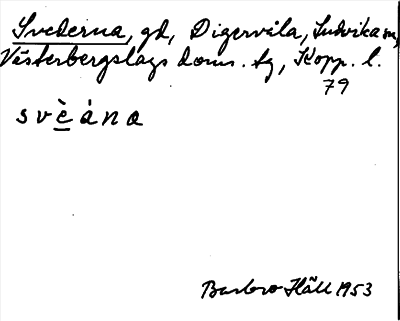 Svederna, gd, Digervåla, Ludvika sn,
Västerbergslags doms. tg, Kopp. l.
79
svèána
Barbro Häll 1953